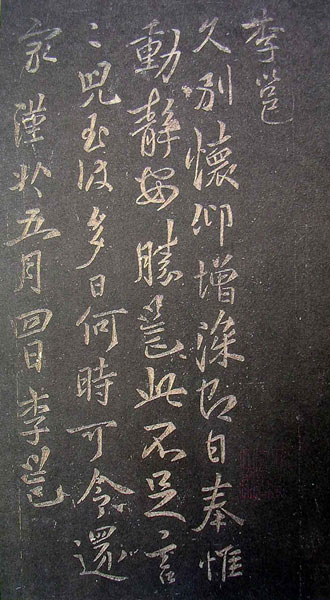 李邕
久別懷仰增深即日奉惟
動靜安勝邕此不足言
〻兒至彼多日何時可令還
謹狀五月四日李邕